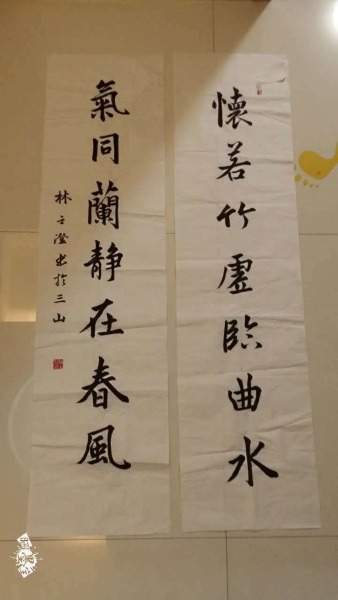 懷若竹虛臨曲水
氣同蘭靜在春風
林云澄书於三山